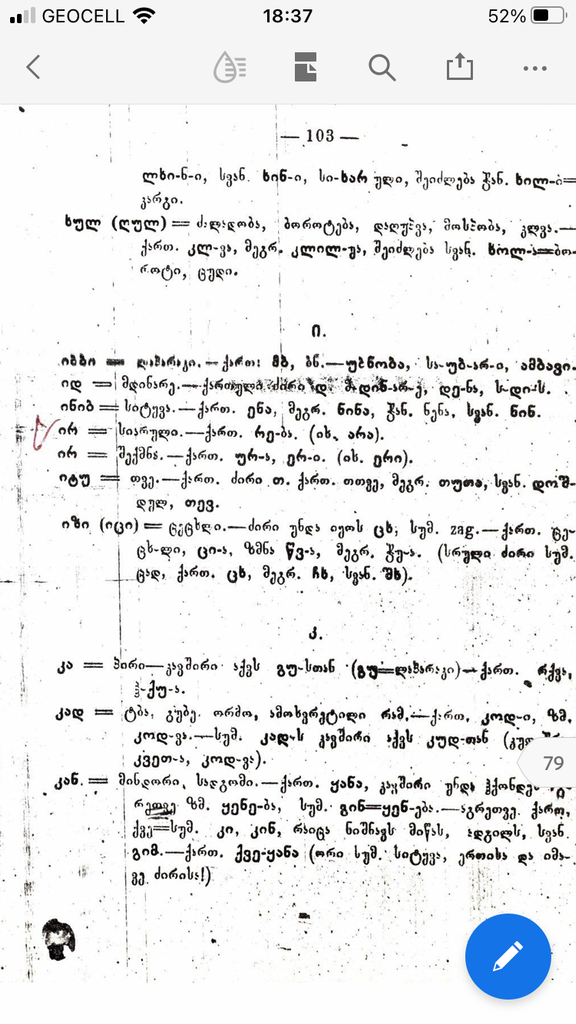 GEOCELL 18:37 52%
— 103 —
ლხი-ნ-ი, სვან. ხინ-ი, სი-ხარ ული, შეიძლება ჭან. ხილ-ი=
კარგი.
ხულ (ღულ) = ძალადობა, ბოროტება, დაღუპვა, მოსპობა, კლვა.—
ქართ. კლ-ვა, მეგრ. კლილ-უა, შეიძლება სვან. ხოლ-ა=ბო-
როტი, ცუდი.
ი.
იბბი = ლაპარაკი.—ქართ: მბ, ბნ.—უბნობა, სა-უბ-არ-ი, ამბავი.
იდ = მდინარე.—ქართული ძირი დ მ-დინ-არ-ე, დე-ნა, ს-დი-ს.
ინიბ = სიტყვა.—ქართ. ენა, მეგრ. ნინა, ჭან. ნენა, სვან. ნინ.
ირ = სიარული.—ქართ. რე-ბა. (იხ. არა).
ირ = შექმნა.—ქართ. ურ-ა, ერ-ი. (იხ. ერი).
იტუ = თვე.—ქართ. ძირი თ. ქართ. თთვე, მეგრ. თუთა, სვან. დოშ-
დულ, თევ.
იზი (იცი) = ცეცხლი.—ძირი უნდა იყოს ცხ, სუმ. zag.—ქართ. ცე-
ცხ-ლი, ცი-ა, ზმნა წვ-ა, მეგრ. ჭუ-ა. (სრული ძირი სუმ.
ცად, ქართ. ცხ, მეგრ. ჩხ, სვან. შხ).
კ.
კა = პირი—კავშირი აქვს გუ-სთან (გუ=ლაპარაკი)—ქართ. რქვა,
ჰ-ქუ-ა.
კად = ტბა, გუბე, ორმო, ამოხვრეტილი რამ.—ქართ. კოდ-ი, ზმ.
კოდ-ვა.—სუმ. კად-ს კავშირი აქვს კუდ-თან
კვეთ-ა, კოდ-ვა).
79
კან. = მინდორი, სადგომი.—ქართ. ყანა, კავშირი უნდა ჰქონდეს
რეთვე ზმ. ყენე-ბა, სუმ. გინ=ყენ-ება.—აგრეთვე ქართ,
ქვე=სუმ. კი, კინ, რაიცა ნიშნავს მიწას, ადგილს, სვან.
გიმ.—ქართ. ქვე-ყანა (ორი სუმ. სიტყვა, ერთისა და იმა-
ვე ძირისა!)